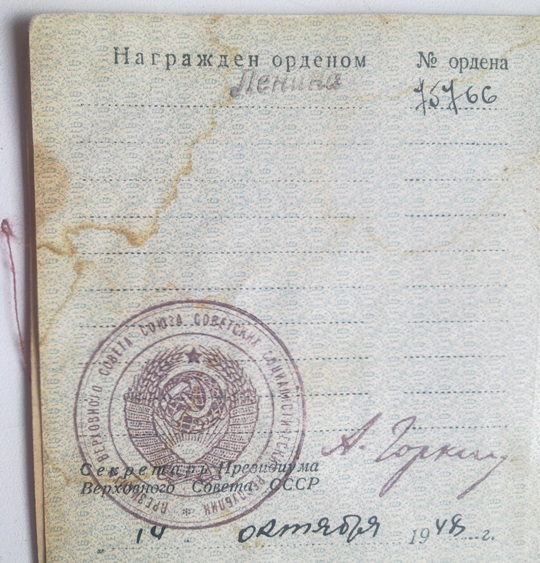 Награжден орденом № ордена
Ленина 75766
ПРЕЗИДИУМ ВЕРХОВНОГО СОВЕТА СОЮЗА СОВЕТСКИХ СОЦИАЛИСТИЧЕСКИХ РЕСПУБЛИК
Секретарь Президиума
Верховного Совета СССР
А. Горкин
„ 14 „ октября 1948 г.